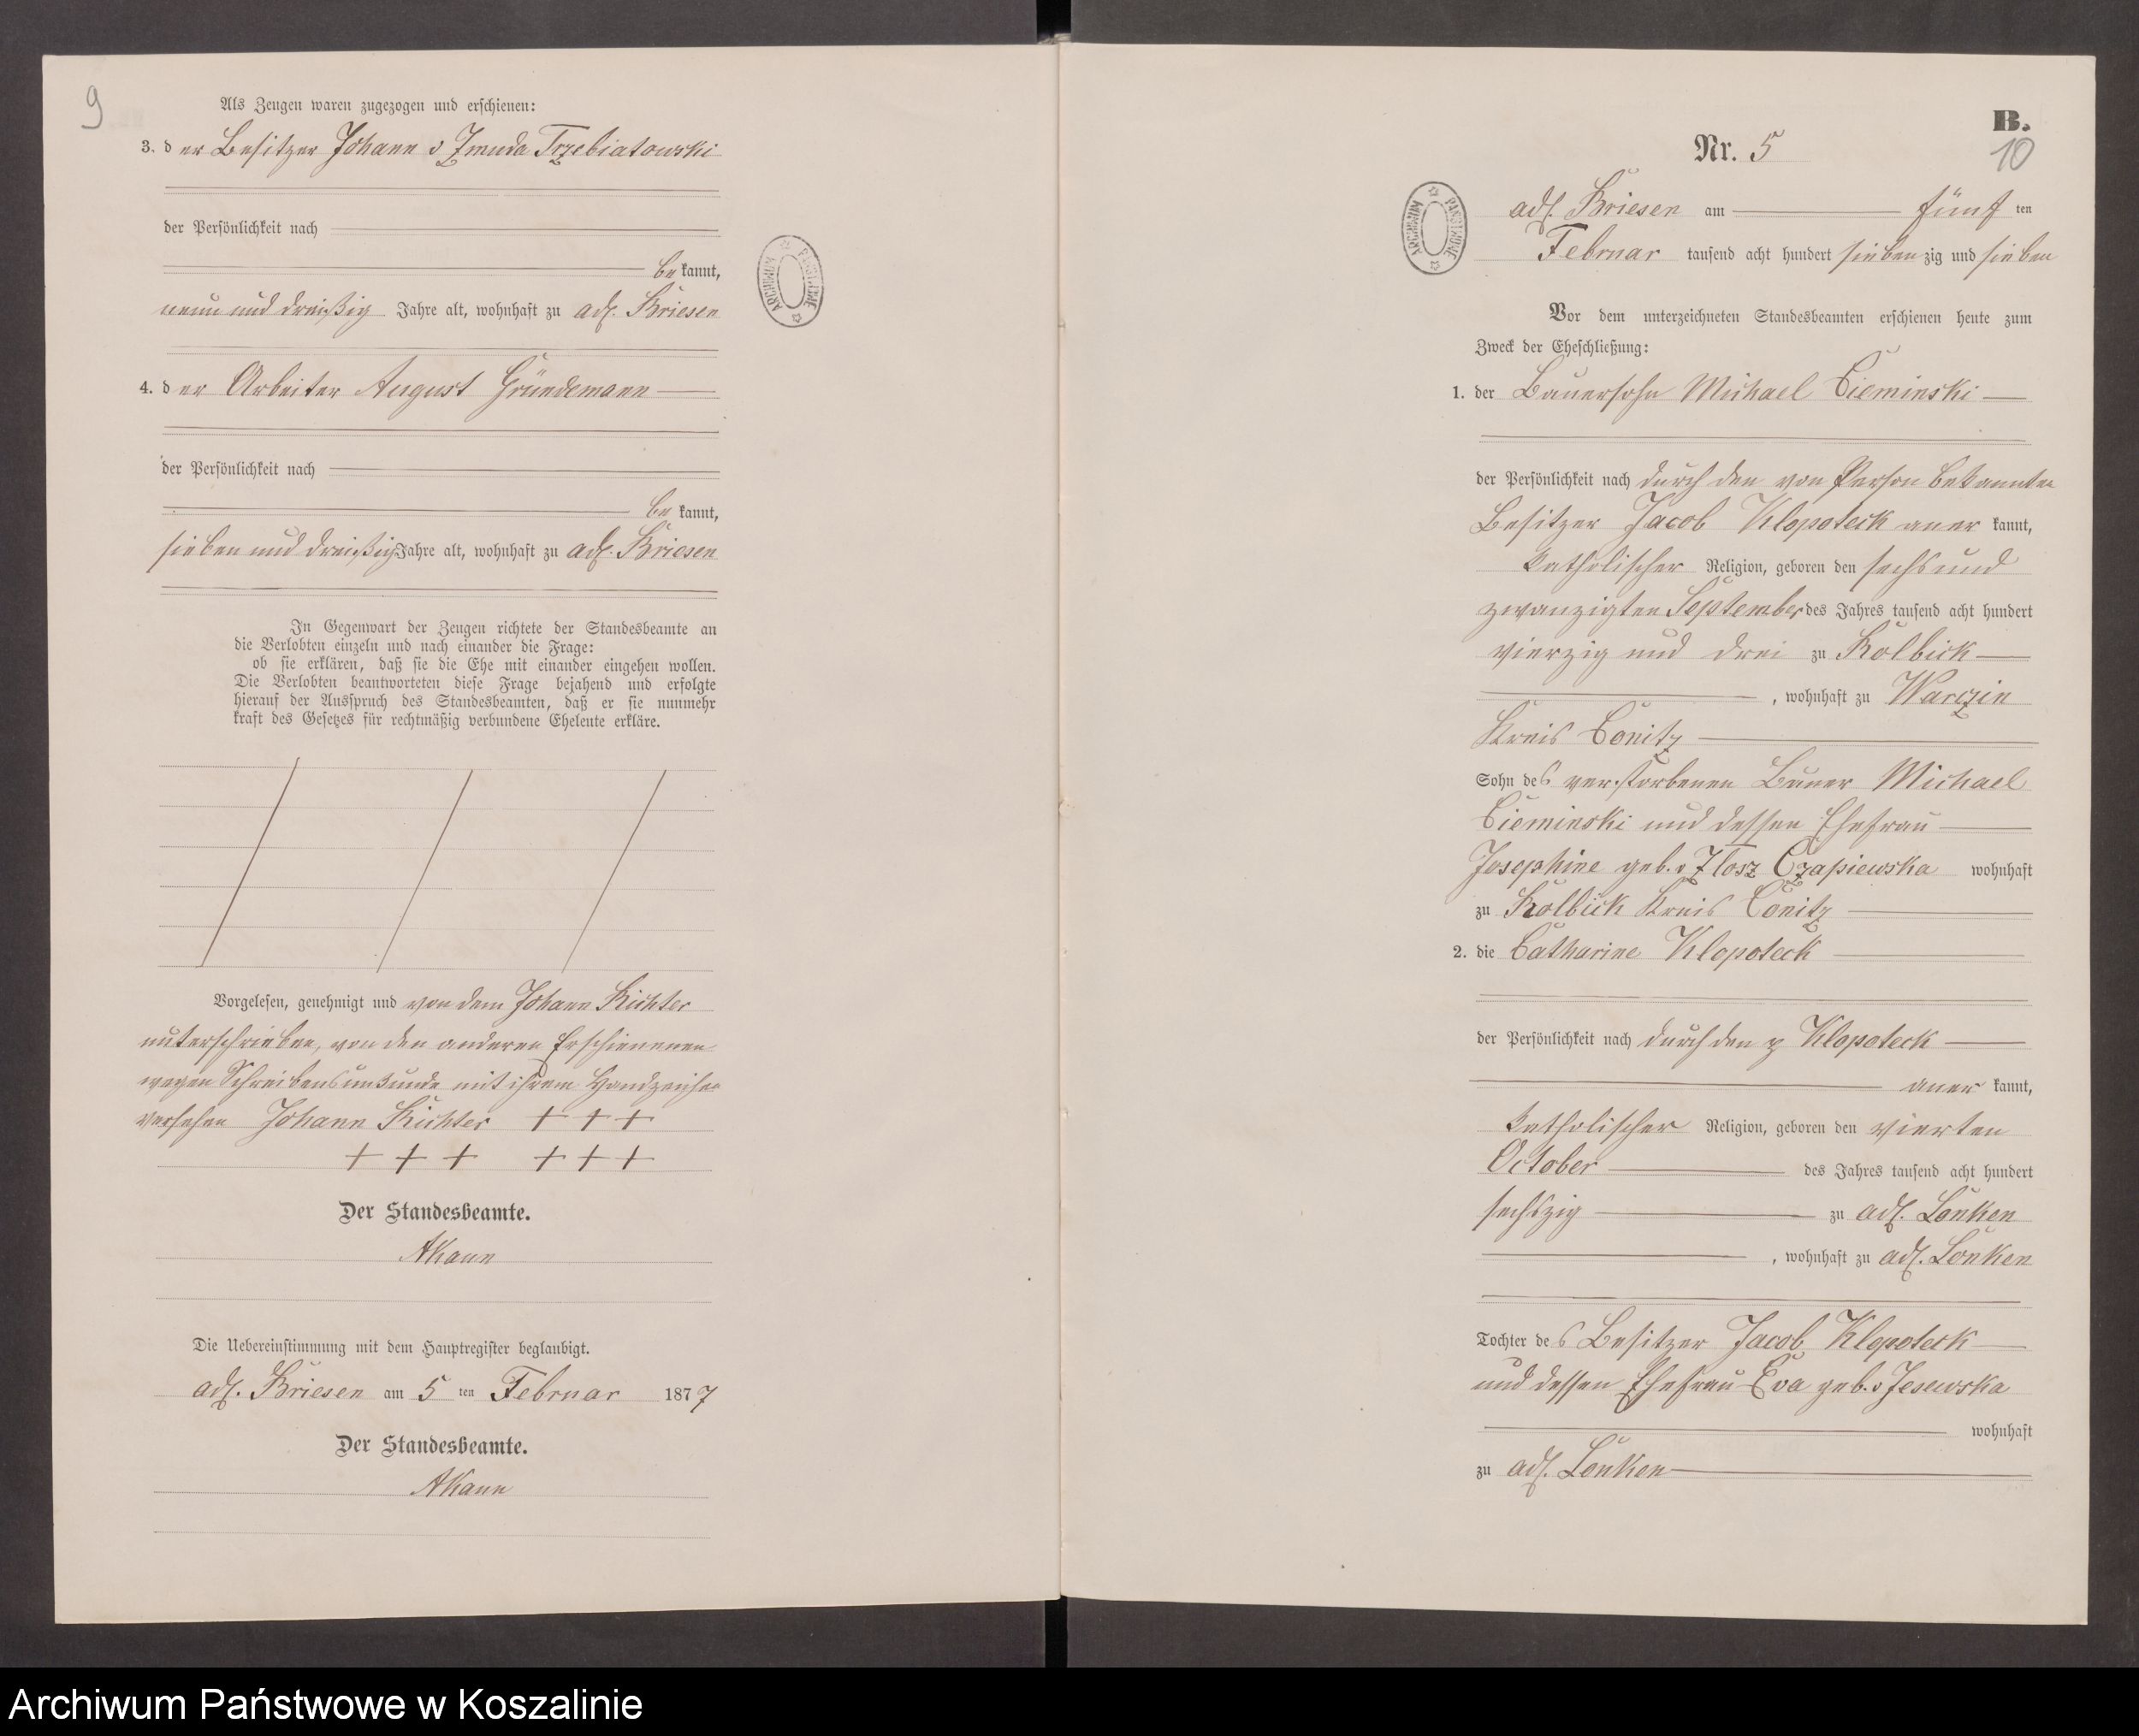 9
Als Zeugen waren zugezogen und erschienen:
3. der Besitzer Johann v Zmuda Trzebiatowski
der Persönlichkeit nach
bekannt,
neun und dreißig Jahre alt, wohnhaft zu adl. Briesen
4. der Arbeiter August Gründemann
der Persönlichkeit nach
bekannt,
sieben und dreißig Jahre alt, wohnhaft zu adl. Briesen
In Gegenwart der Zeugen richtete der Standesbeamte an
die Verlobten einzeln und nach einander die Frage:
ob sie erklären, daß sie die Ehe mit einander eingehen wollen.
Die Verlobten beantworteten diese Frage bejahend und erfolgte
hierauf der Ausspruch des Standesbeamten, daß er sie nunmehr
kraft des Gesetzes für rechtmäßig verbundene Eheleute erkläre.
Vorgelesen, genehmigt und von dem Johann Richter
unterschrieben, von den anderen Erschienenen
wegen Schreibensunkunde mit ihrem Handzeichen
versehen Johann Richter + + +
+ + + + + +
Der Standesbeamte.
AKaun
Die Uebereinstimmung mit dem Hauptregister beglaubigt.
adl. Briesen am 5 ten Februar 1877
Der Standesbeamte.
AKaun
ARCHIWUM PAŃSTWOWE
B.
10
Nr. 5
ARCHIWUM PAŃSTWOWE
adl. Briesen am fünf ten
Februar tausend acht hundert siebenzig und sieben
Vor dem unterzeichneten Standesbeamten erschienen heute zum
Zweck der Eheschließung:
1. der Bauersohn Michael Cieminski
der Persönlichkeit nach durch den von Person bekannten
Besitzer Jacob Klopoteck anerkannt,
katholischer Religion, geboren den sechs und
zwanzigten September des Jahres tausend acht hundert
vierzig und drei zu Kolbick
, wohnhaft zu Warczin
Kreis Conitz
Sohn des verstorbenen Bauer Michael
Cieminski und dessen Ehefrau
Josephine geb. v Zlosz Czapiewska wohnhaft
zu Kolbick Kreis Conitz
2. die Catharine Klopoteck
der Persönlichkeit nach durch den p Klopoteck
anerkannt,
katholischer Religion, geboren den vierten
October des Jahres tausend acht hundert
sechszig zu adl. Lonken
, wohnhaft zu adl. Lonken
Tochter des Besitzer Jacob Klopoteck
und dessen Ehefrau Eva geb. v Jesewska
wohnhaft
zu adl. Lonken
Archiwum Państwowe w Koszalinie